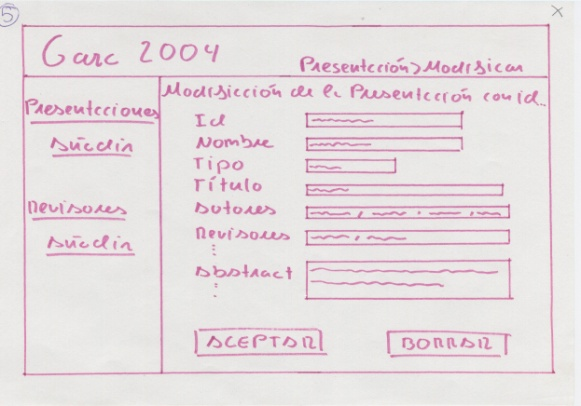 5
X
Garc 2004
Presentación>Modificar
Presentaciones
Añadir
Revisores
Añadir
Modificación de la Presentación con id..
Id
Nombre
Tipo
Título
Autores
Revisores
Abstract
ACEPTAR
BORRAR